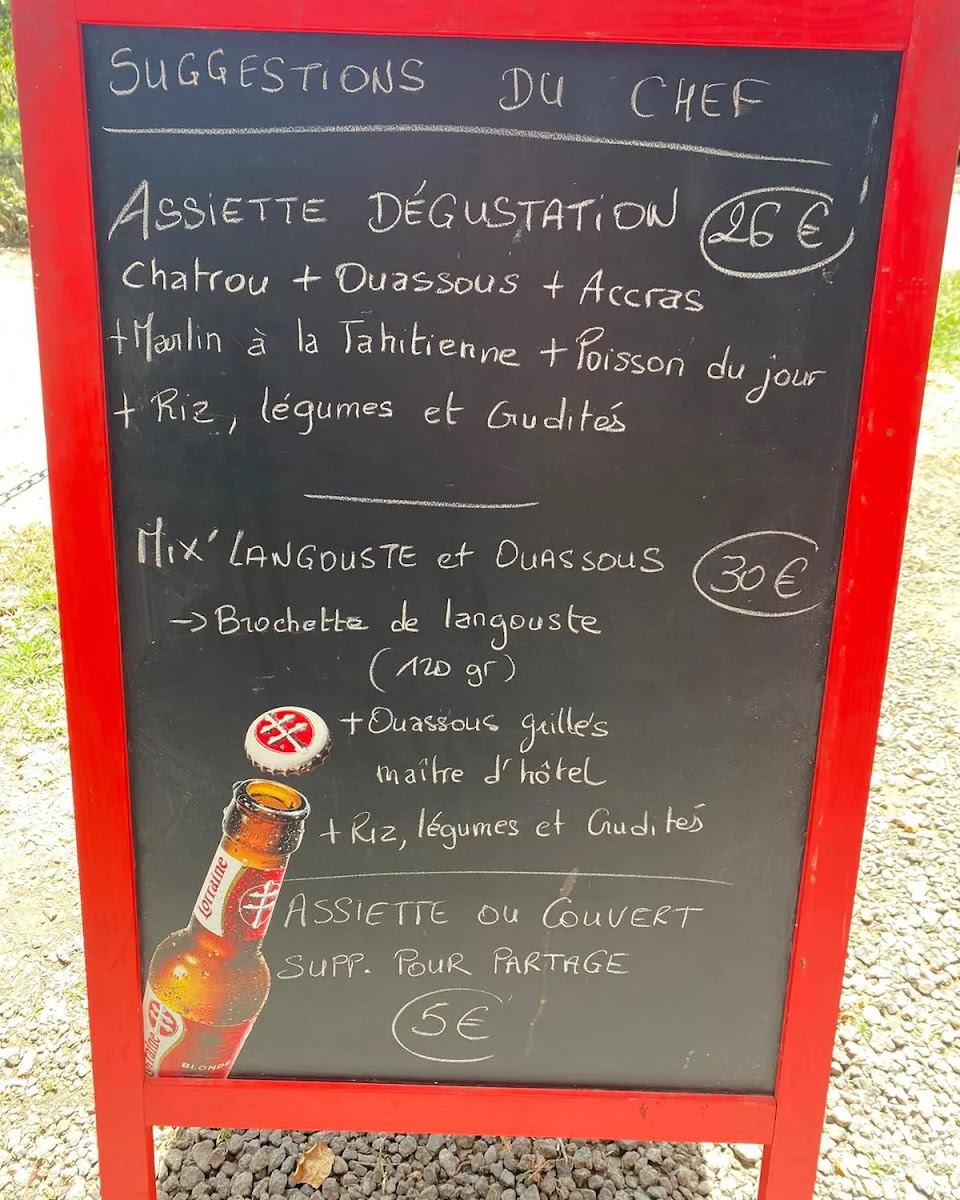 SUGGESTIONS DU CHEF
ASSIETTE DÉGUSTATION 26 €
Chatrou + Ouassous + Accras
+ Marlin à la Tahitienne + Poisson du jour
+ Riz, légumes et Crudités
MIX' LANGOUSTE et OUASSOUS 30 €
-> Brochette de langouste
(120 gr)
+ Ouassous grillés
maître d'hôtel
+ Riz, légumes et Crudités
ASSIETTE OU COUVERT
SUPP. POUR PARTAGE
5 €
Lorraine
Lorraine
BLONDE